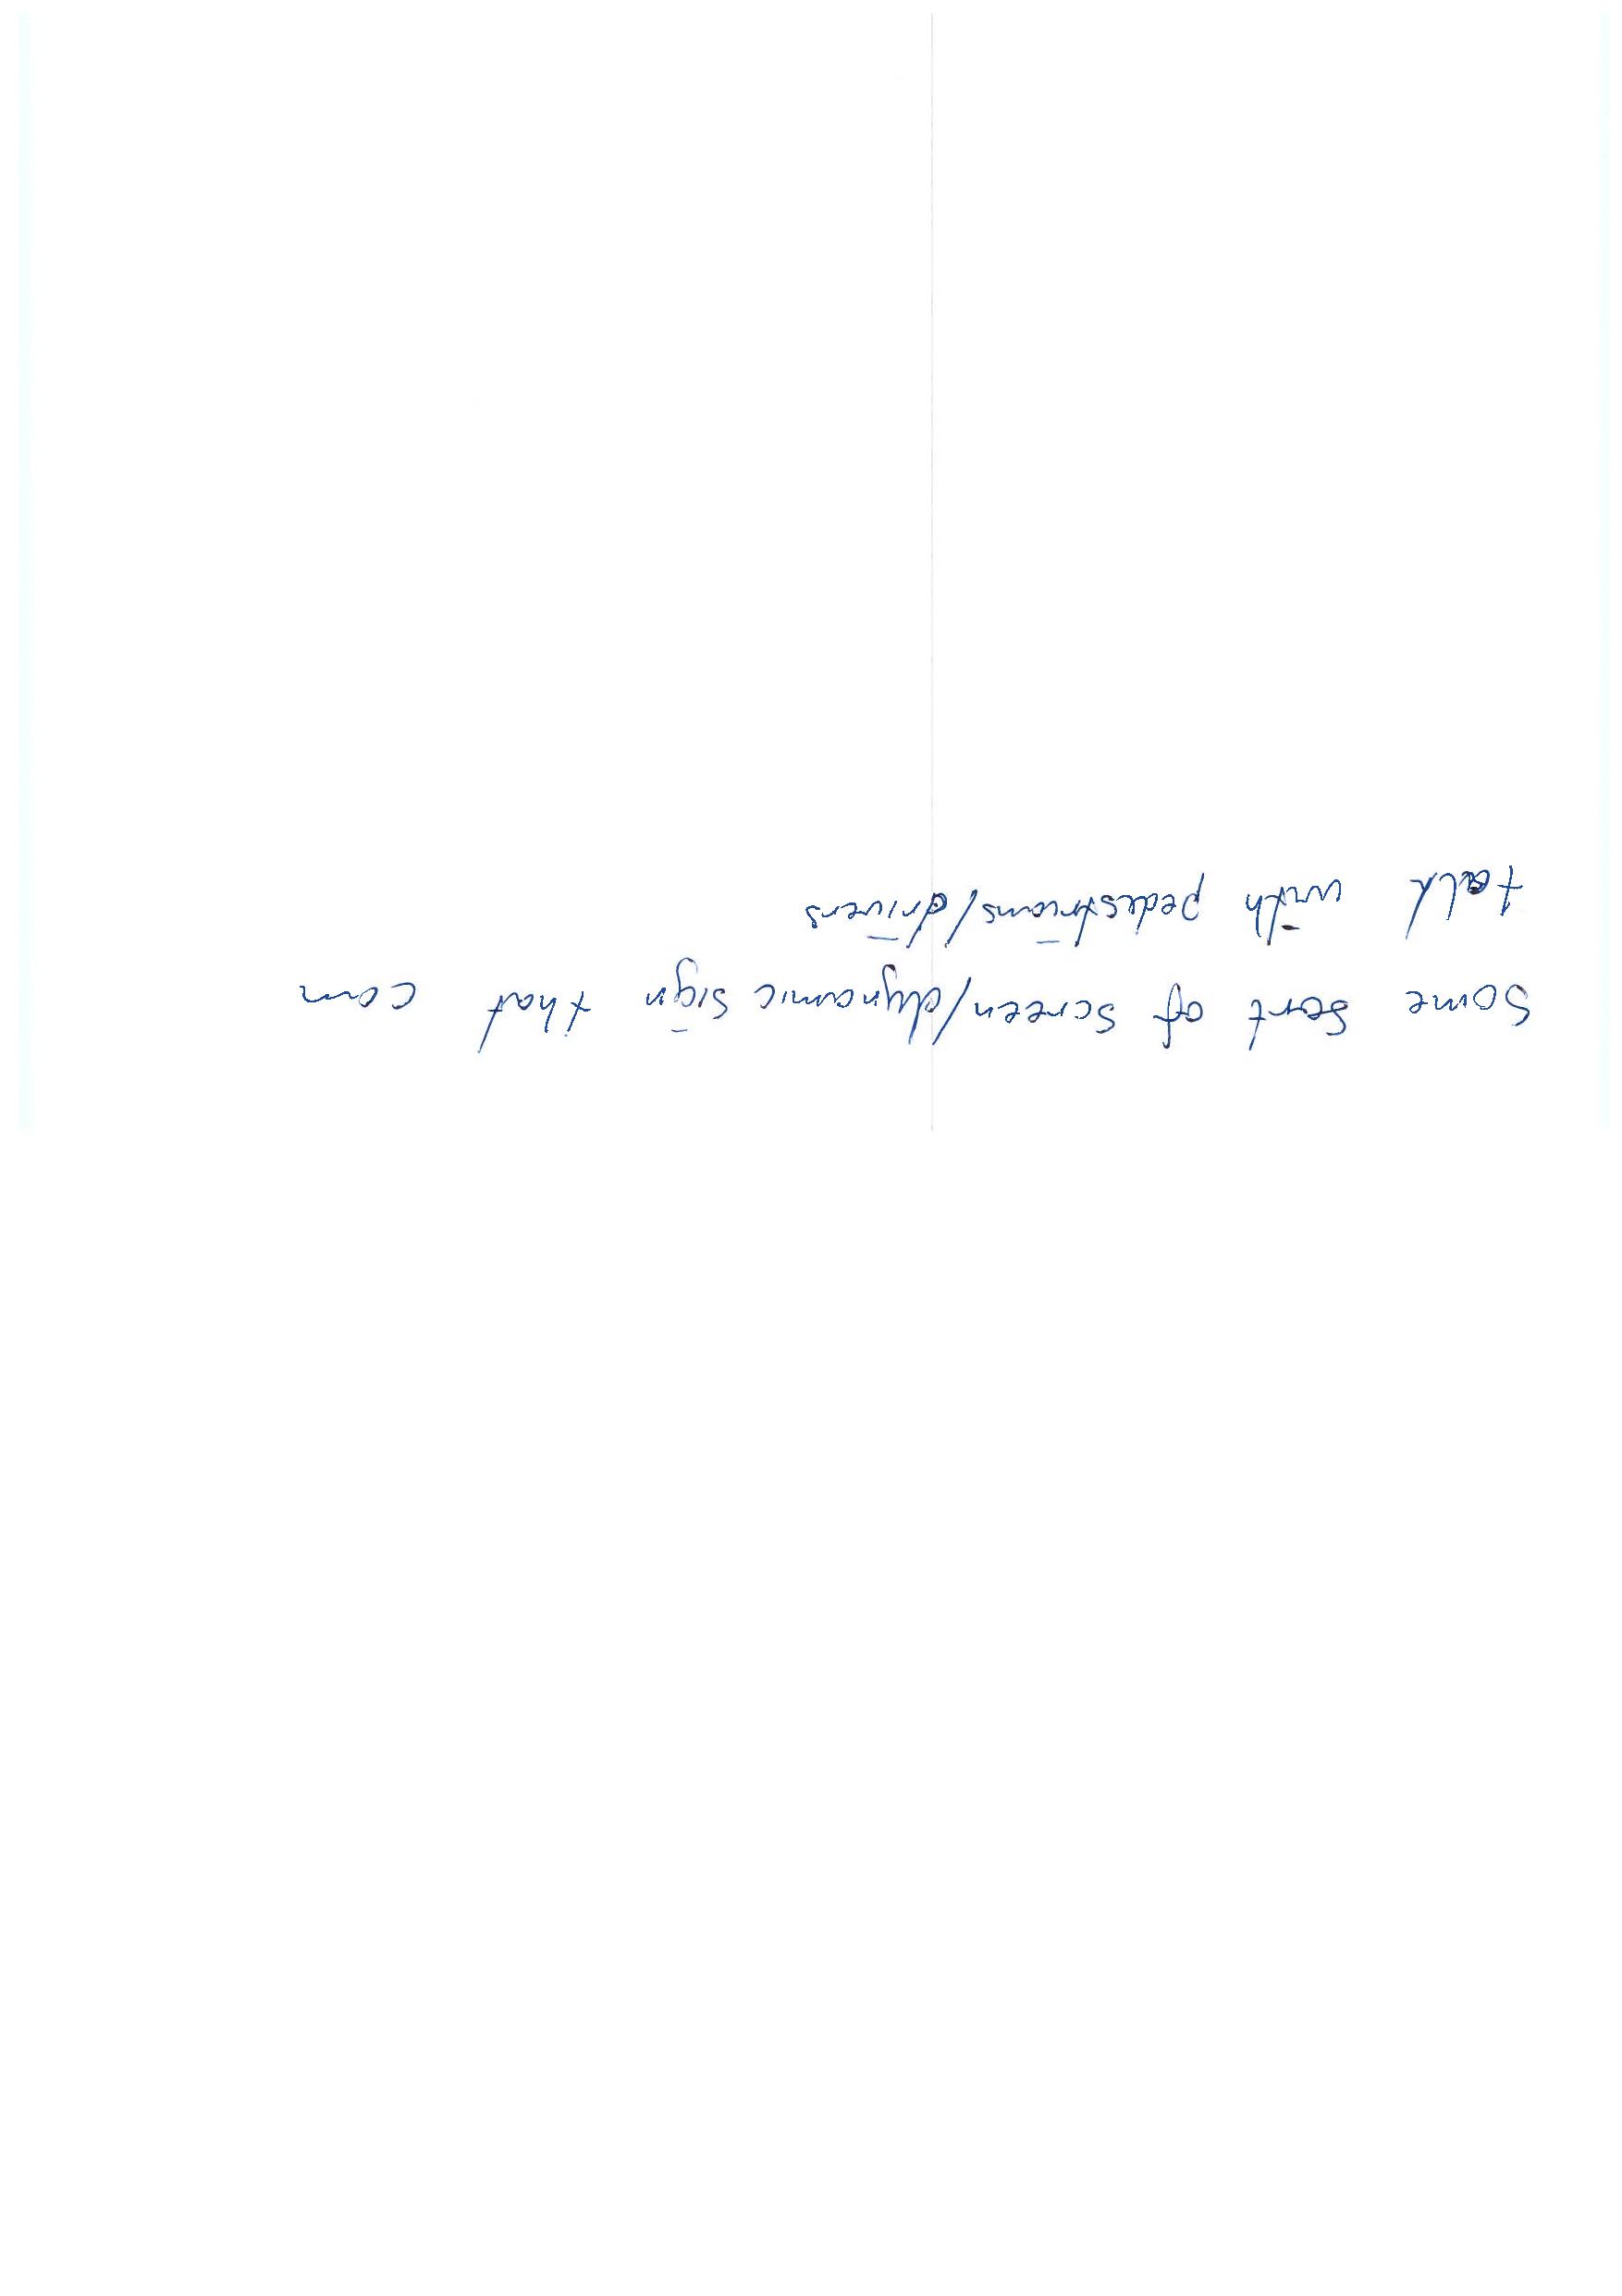 Some sort of screen/dynamic sign that can
talk with pedestrians/drivers